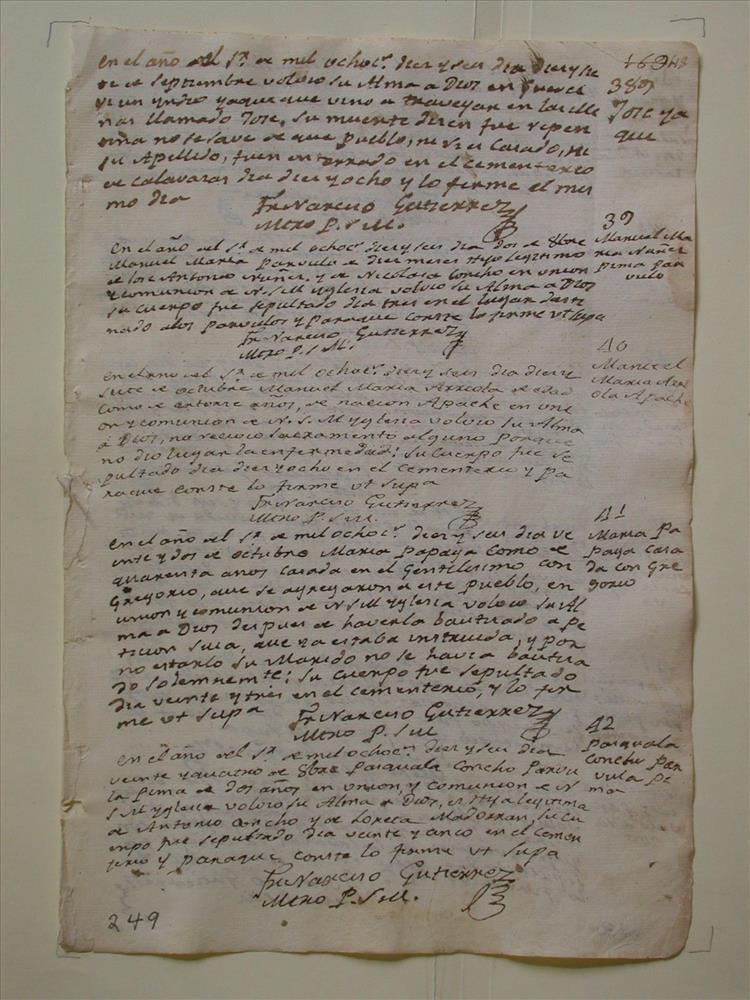 En el año del Sr. de mil ochoc.s diez y seis dia diez y sie
te de septiembre volvio su Alma a Dios en
un yndio yaqui que vino a travejar en las
llamado Jose, su muerte dicen fue repen
tina no se save de que pueblo, ni si es Casado, ni
su Apellido, fue enterrado en el cementerio
de calavazas dia diez y ocho y lo firme el mis
mo dia
Fr. Narciso Gutierrez
Mtro P. S M.
38
Jose ya
qui
En el año del Sr. de mil ochoc.s diez y seis dia dos de 8bre
Manuel Maria Parvulo de diez meses Hijo legitimo
de Jose Antonio Nuñez, y de Nicolasa Concho en union
y comunion de N. S M Yglesia volvio su Alma a Dios
su cuerpo fue sepultado dia tres en el lugar desti
nado a los parvulos y paraque conste lo firme vt supa
Fr. Narciso Gutierrez
Mtro P. S M.
39
Manuel Ma
ria Nuñez
pima par
vulo
En el año del Sr. de mil ochoc.s diez y seis dia diez y
siete de octubre Manuel Maria Arriola de edad
como de catorce años, de nacion Apache en uni
on y comunion de N. S. M Yglesia volvio su Alma
a Dios, no recivio Sacramento alguno porque
no dio lugar la enfermedad; su Cuerpo fue se
pultado dia diez y ocho en el cementerio y pa
raque conste lo firme vt supa
Fr. Narciso Gutierrez
Mtro P. S M.
40
Manuel
Maria Arri
ola Apache
En el año del Sr. de mil ochoc.s diez y seis dia ve
inte y dos de octubre Maria Papaya como de
quarenta años casada en el Gentilismo con
Gregorio, que se agregaron a este pueblo, en
union y comunion de N S M Yglesia volvio su Al
ma a Dios despues de haverla bautizado a pe
ticion suia, que ya estaba instruida, y por
no estarlo su Marido no se havia bautiza
do solemnemte; su cuerpo fue sepultado
dia veinte y tres en el cementerio, y lo fir
me vt supa
Fr. Narciso Gutierrez
Mtro P. S M
41
Maria Pa
paya casa
da con Gre
gorio
En el año del Sr. de mil ochoc.s diez y seis dia
veinte y quatro de 8bre Pasquala Concho Parvu
la pima de dos años en union, y comunion de N
S M Yglesia volvio su Alma a Dios, es Hija legitima
de Antonio Concho y de Loreta Madorran, su Cu
erpo fue sepultado dia veinte y cinco en el Cemen
terio y paraque conste lo firme vt supa
Fr. Narciso Gutierrez
Mtro P. S M.
42
Pasquala
Concho Par
vula Pi
ma
249